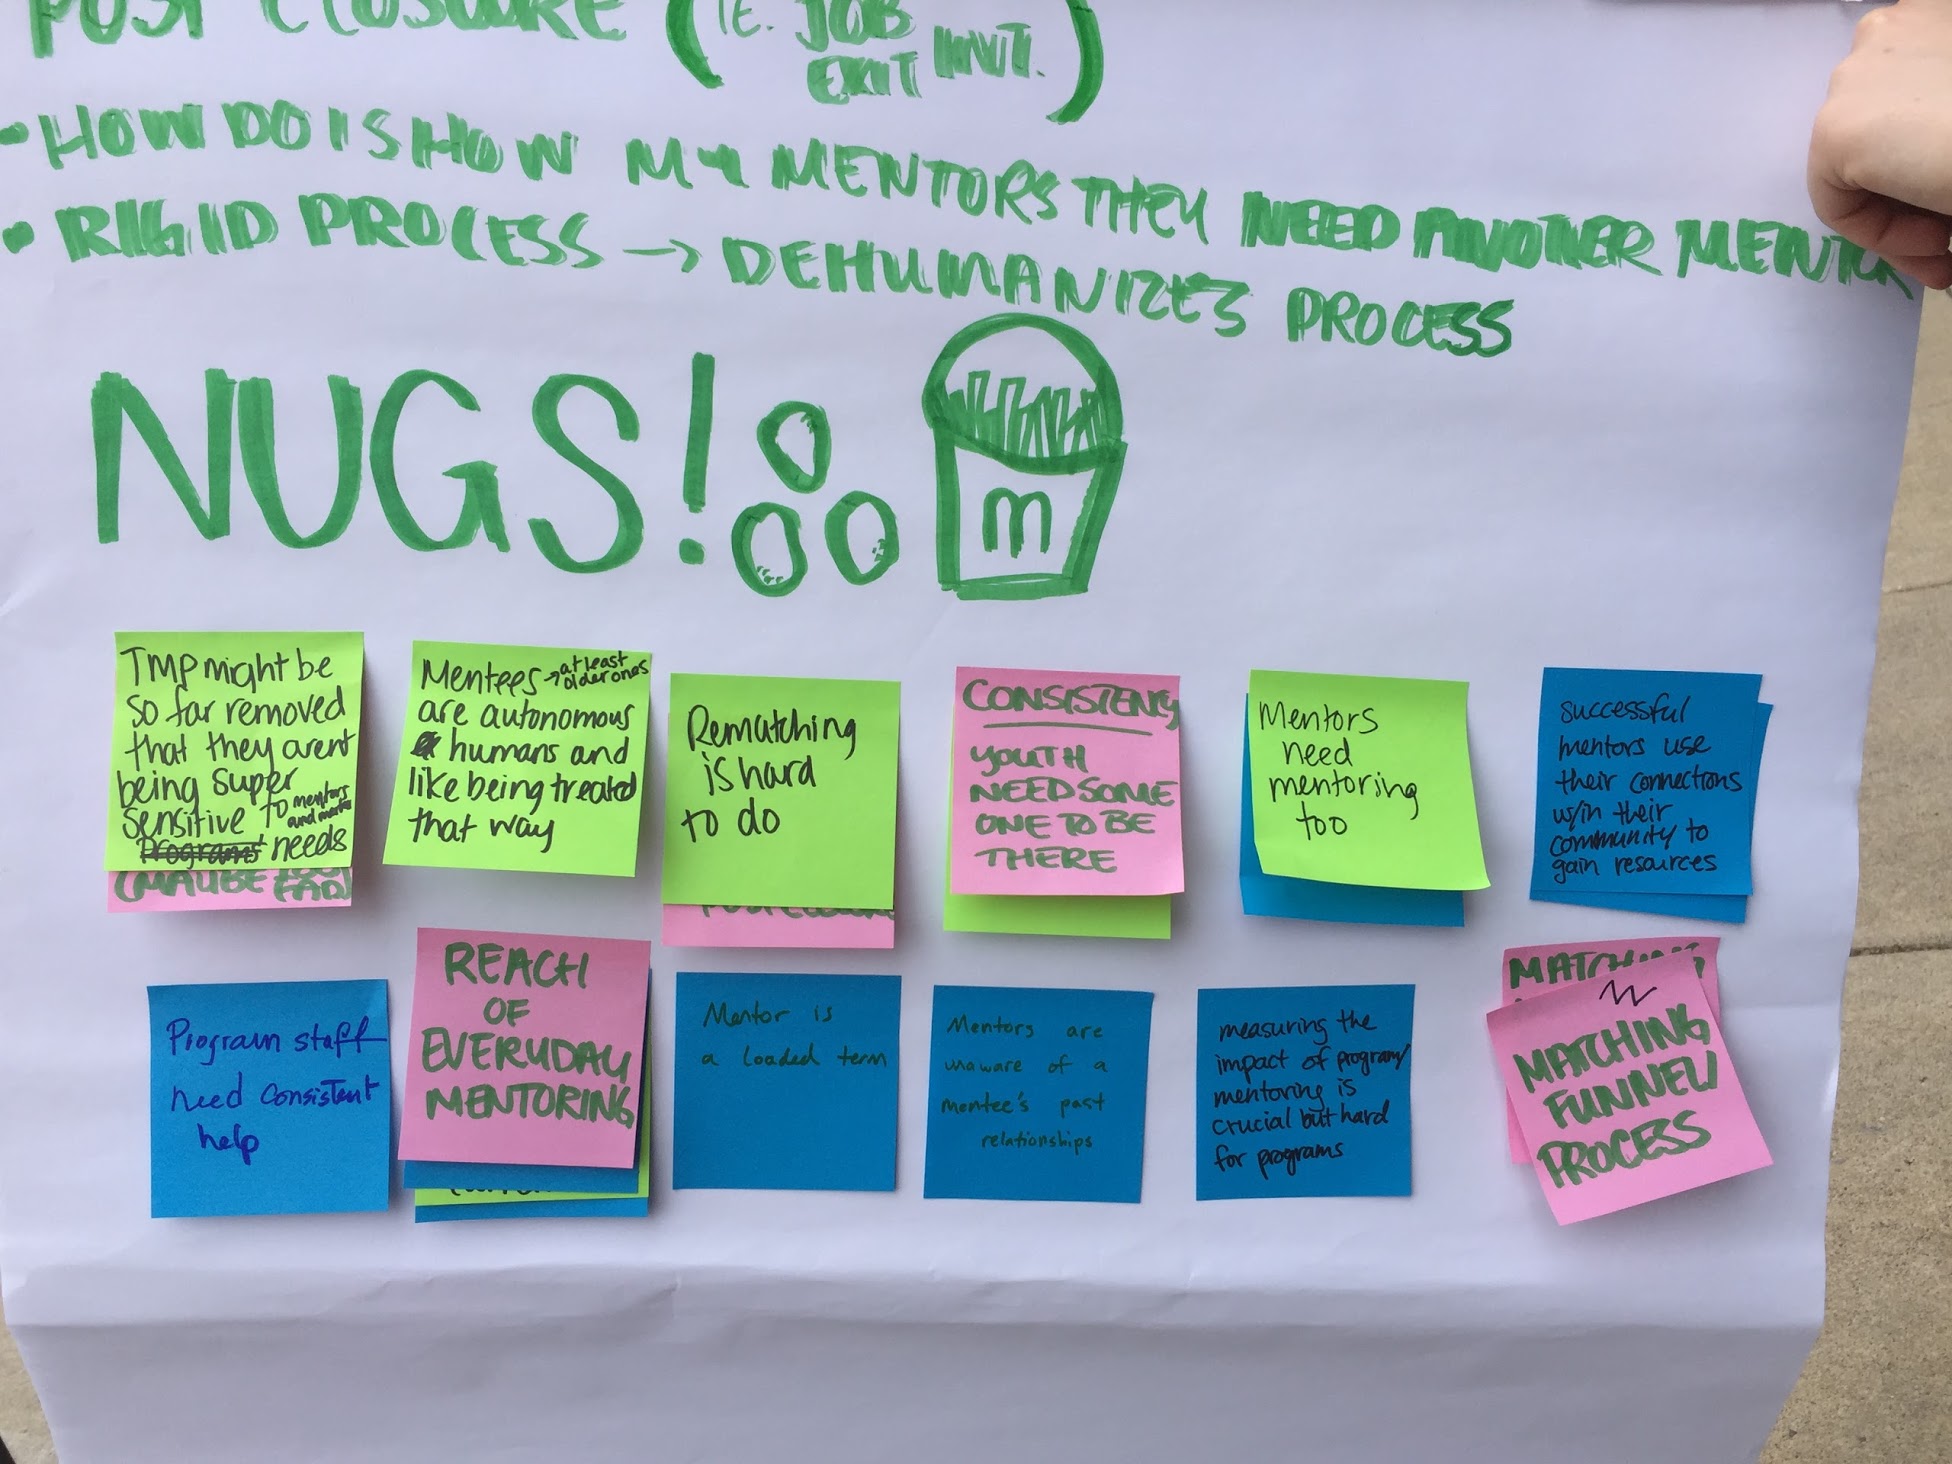 POST CLOSURE (IE. JOB
EXIT INVT.)
• HOW DO I SHOW MY MENTORS THEY NEED ANOTHER MENTOR
• RIGID PROCESS → DEHUMANIZES PROCESS
NUGS!
m
TMP might be
so far removed
that they arent
being super
sensitive to mentors
and
Programs needs
(MAYBE TOO
FAR)
Mentees → at least
older ones
are autonomous
humans and
like being treated
that way
Rematching
is hard
to do
CONSISTENCY
YOUTH
NEED SOME
ONE TO BE
THERE
Mentors
need
mentoring
too
successful
mentors use
their connections
w/in their
community to
gain resources
Program staff
need consistent
help
REACH
OF
EVERYDAY
MENTORING
Mentor is
a loaded term
Mentors are
unaware of a
mentee's past
relationships
measuring the
impact of program/
mentoring is
crucial but hard
for programs
MATCHING
MATCHING
FUNNEL/
PROCESS